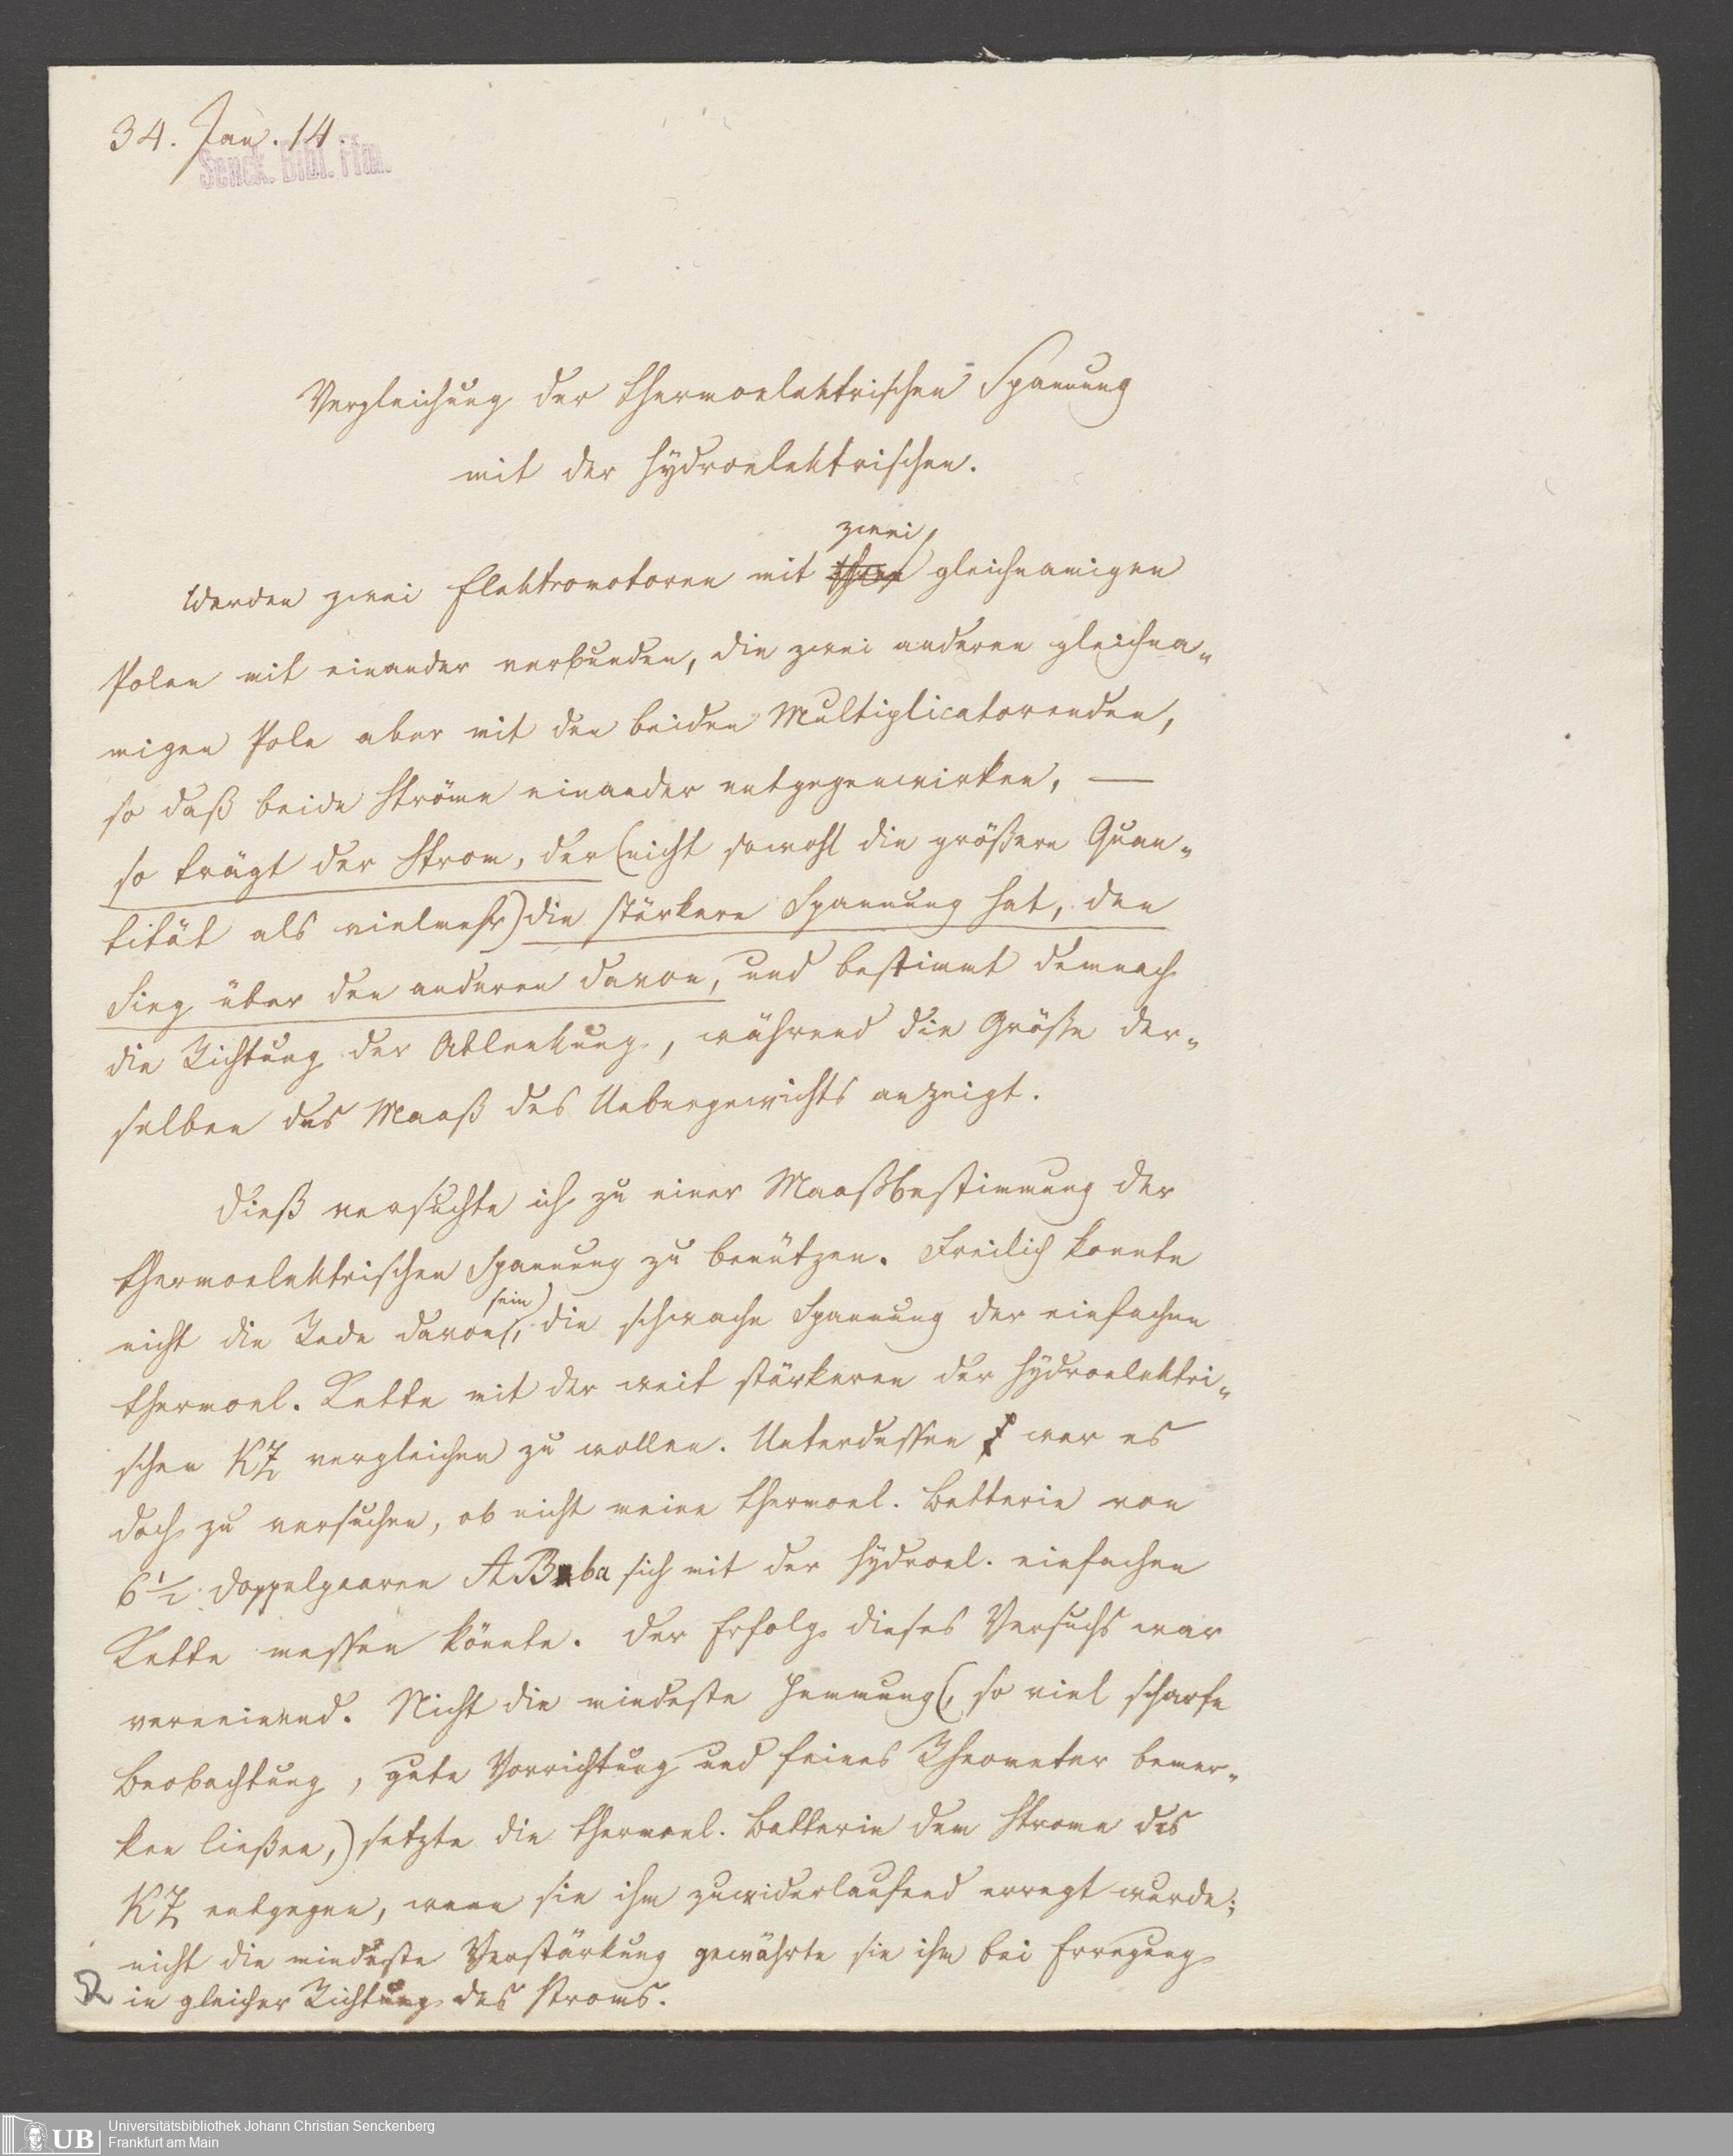 34. Jan. 14
Senck. Bibl. Ffm.
Vergleichung der thermoelektrischen Spannung
mit der hydroelektrischen.
zwei
Werden zwei Elektromotoren mit ihren gleichnamigen
Polen mit einander verbunden, die zwei anderen gleichna-
migen Pole aber mit den beiden Multiplicatorenden,
so daß beide Ströme einander entgegenwirken, —
so trägt der Strom, der (nicht sowohl die größere Quan-
tität als vielmehr) die stärkere Spannung hat, den
Sieg über den anderen davon, und bestimmt demnach
die Richtung der Ablenkung, während die Größe der-
selben das Maaß des Uebergewichts anzeigt.
Dieß versuchte ich zu einer Maaßbestimmung der
thermoelektrischen Spannung zu benützen. Freilich konnte
sein
nicht die Rede davon, die schwache Spannung der einfachen
thermoel. Kette mit der weit stärkeren der hydroelektri-
schen KZ vergleichen zu wollen. Unterdessen war es
doch zu versuchen, ob nicht meine thermoel. Batterie von
6 1/2 Doppelpaaren AB ba sich mit der hydroel. einfachen
Kette messen könnte. Der Erfolg dieses Versuchs war
verneinend. Nicht die mindeste Hemmung (, so viel scharfe
Beobachtung, gute Vorrichtung und feines Rheometer bemer-
ken ließen,) setzte die thermoel. Batterie dem Strome des
KZ entgegen, wenn sie ihm zuwiderlaufend erregt wurde;
nicht die mindeste Verstärkung gewährte sie ihm bei Erregung
in gleicher Richtung des Stroms.
UB
Universitätsbibliothek Johann Christian Senckenberg
Frankfurt am Main